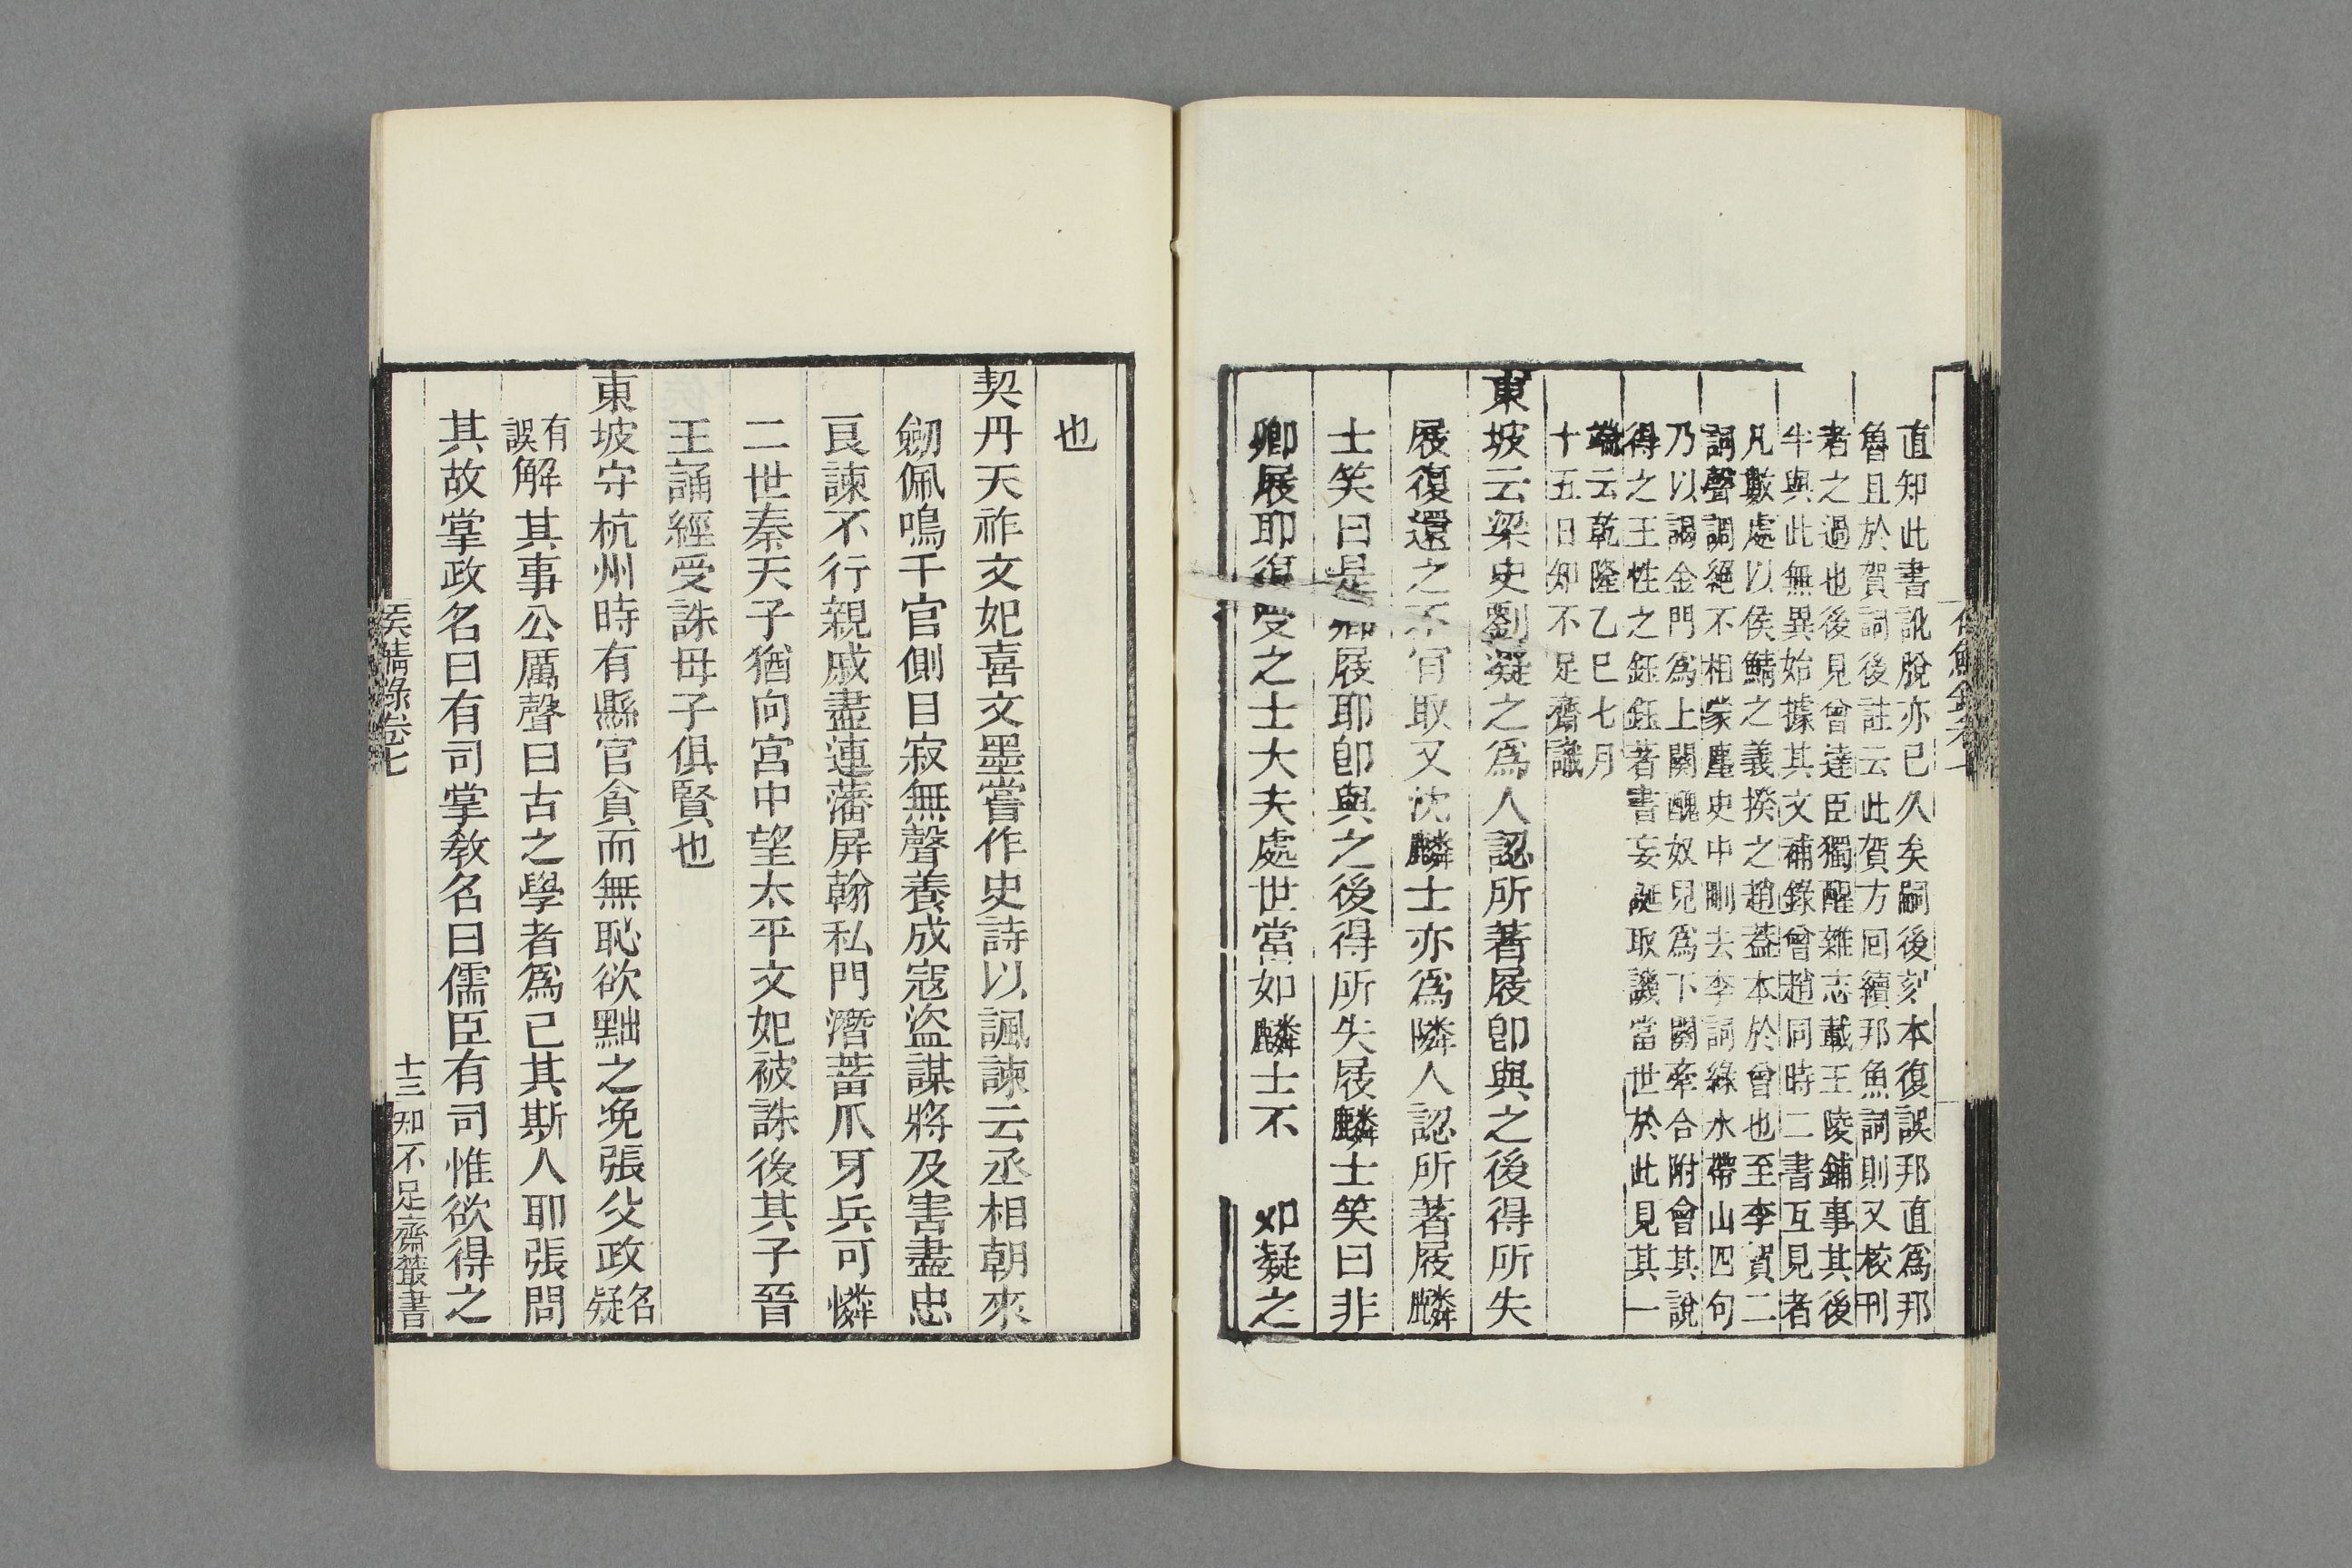 直知此書訛脫亦已久矣嗣後刻本復誤邦直爲邦
魯且於賀詞後註云此賀方回續邦魚詞則又核刊
者之過也後見曾達臣獨醒雜志載王陵鋪事其後
半與此無異始據其文補錄曾趙同時二書互見者
凡數處以侯鯖之義揆之趙葢本於曾也至李賀二
詞聲調絕不相蒙麈史中刪去李詞綠水帶山四句
乃以謁金門爲上闋醜奴兒爲下闋牽合附會其說
得之王性之銍銍著書妄誕取譏當世於此見其一
端云乾隆乙巳七月
十五日知不足齋識
東坡云梁史劉凝之爲人認所著屐卽與之後得所失
屐復還之不肯取又沈麟士亦爲隣人認所著屐麟
士笑曰是卿屐耶卽與之後得所失屐麟士笑曰非
卿屐耶復受之士大夫處世當如麟士不 如凝之
也
契丹天祚文妃喜文墨嘗作史詩以諷諫云丞相朝來
劒佩鳴千官側目寂無聲養成寇盜謀將及害盡忠
良諫不行親戚盡連藩屏翰私門潛蓄爪牙兵可憐
二世秦天子猶向宮中望太平文妃被誅後其子晉
王誦經受誅母子俱賢也
東坡守杭州時有縣官貪而無恥欲黜之免張父政名疑
有誤解其事公厲聲曰古之學者爲已其斯人耶張問
其故掌政名曰有司掌教名曰儒臣有司惟欲得之
侯鯖錄卷七
十三 知不足齋叢書